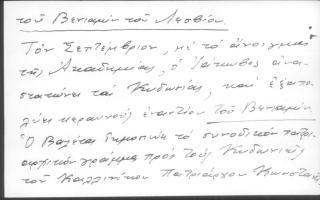 τοῦ Βενιαμὶν τοῦ Λεσβίου.
Τὸν Σεπτέμβριον, μὲ τὸ ἄνοιγμα
τῆς Ἀκαδημίας, ὁ Ἰάκωβος ἀνα-
στατώνει τὰς Κυδωνίας, καὶ ἐξαπο-
λύει κεραυνοὺς ἐναντίον τοῦ Βενιαμίν.
Ὁ Βαλέτας δημοσιεύει τὸ συνοδικὸν πατρι-
αρχικὸν γράμμα πρὸς τοὺς Κυδωνιεῖς
τοῦ Καλλινίκου Πατριάρχου Κωνσταν